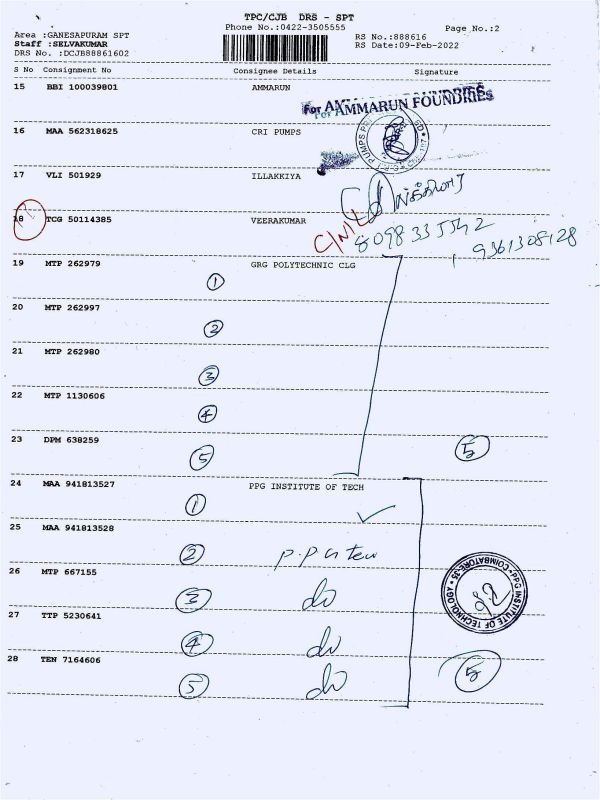 TPC/CJB DRS - SPT
Phone No.:0422-3505555
Page No.:2
Area :GANESAPURAM SPT
RS No.:888616
Staff :SELVAKUMAR
RS Date:09-Feb-2022
DRS No. :DCJB88861602
S No Consignment No Consignee Details Signature
15 BBI 100039801 AMMARUN
For AMMARUN FOUNDRIES
16 MAA 562318625 CRI PUMPS
17 VLI 501929 ILLAKKIYA
18 TCG 50114385 VEERAKUMAR
CIVIL
8098335542
9361308128
19 MTP 262979 GRG POLYTECHNIC CLG
1
20 MTP 262997
2
21 MTP 262980
3
22 MTP 1130606
4
23 DPM 638259
5 5
24 MAA 941813527 PPG INSTITUTE OF TECH
1
25 MAA 941813528
2
26 MTP 667155
3 do
PPG INSTITUTE OF TECHNOLOGY COIMBATORE-35
27 TTP 5230641
4 do
28 TEN 7164606
5 do 5